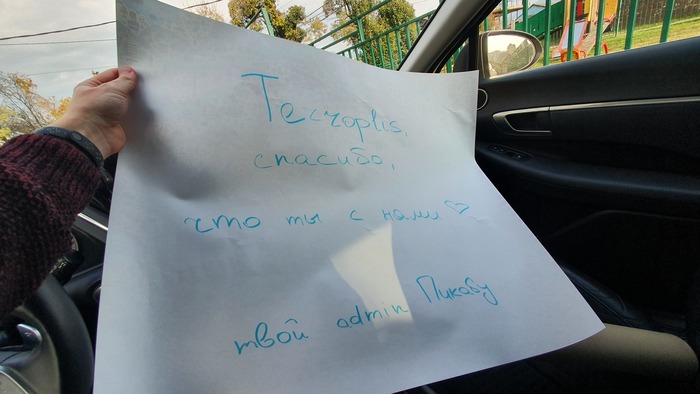 Tecroplis,
спасибо,
что ты с нами♡
твой admin Пикабу